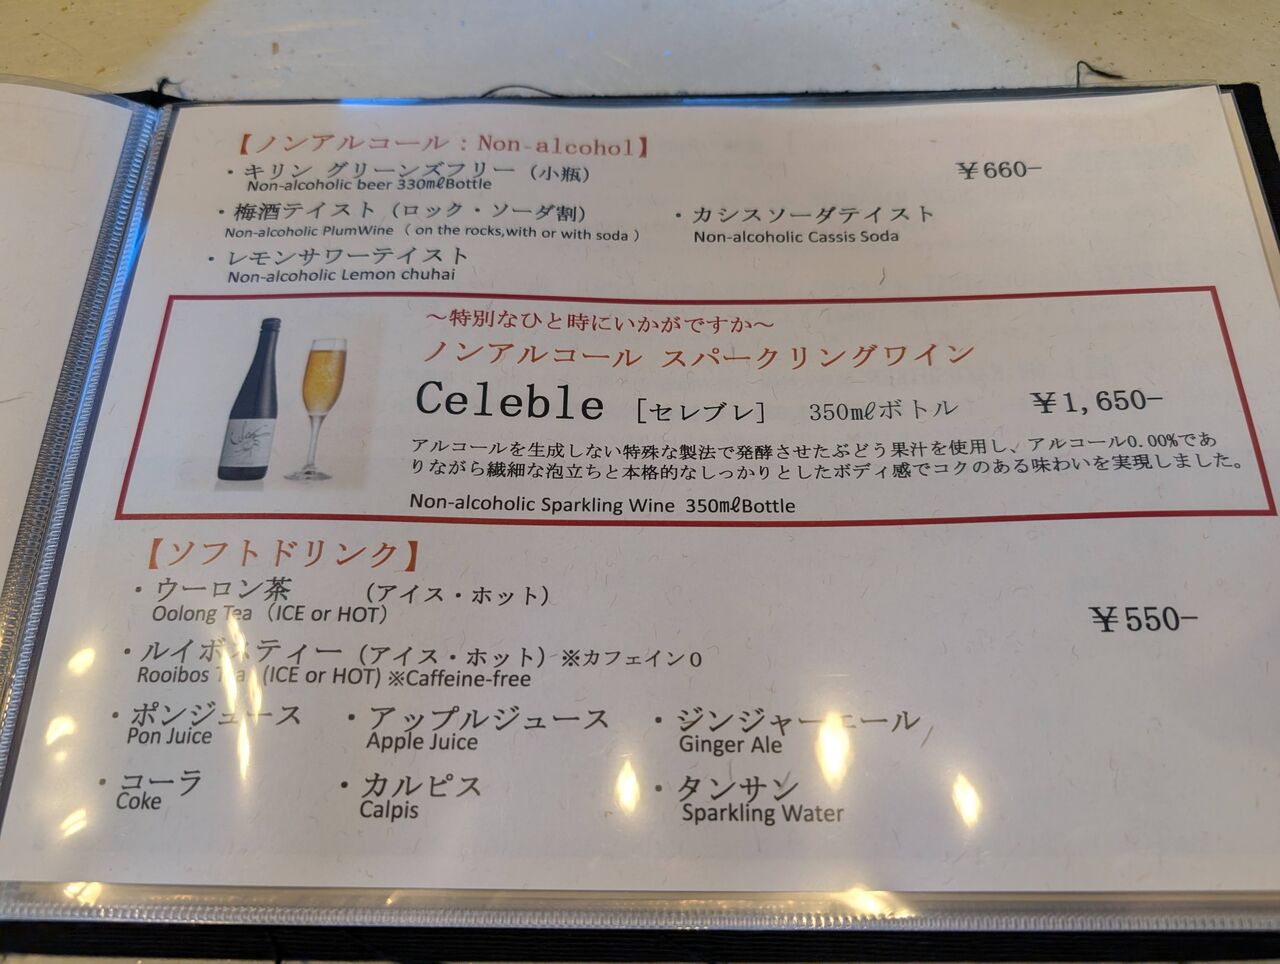 【ノンアルコール：Non-alcohol】
・キリン グリーンズフリー（小瓶） ￥660−
Non-alcoholic beer 330㎖Bottle
・梅酒テイスト（ロック・ソーダ割） ・カシスソーダテイスト
Non-alcoholic PlumWine（ on the rocks,with or with soda ） Non-alcoholic Cassis Soda
・レモンサワーテイスト
Non-alcoholic Lemon chuhai
～特別なひと時にいかがですか～
ノンアルコール スパークリングワイン
Celeble ［セレブレ］ 350㎖ボトル ￥1,650−
アルコールを生成しない特殊な製法で発酵させたぶどう果汁を使用し、アルコール0.00%であ
りながら繊細な泡立ちと本格的なしっかりとしたボディ感でコクのある味わいを実現しました。
Non-alcoholic Sparkling Wine 350㎖Bottle
【ソフトドリンク】
・ウーロン茶 （アイス・ホット）
Oolong Tea（ICE or HOT） ￥550−
・ルイボスティー（アイス・ホット）※カフェイン０
Rooibos Tea (ICE or HOT) ※Caffeine-free
・ポンジュース ・アップルジュース ・ジンジャーエール
Pon Juice Apple Juice Ginger Ale
・コーラ ・カルピス ・タンサン
Coke Calpis Sparkling Water